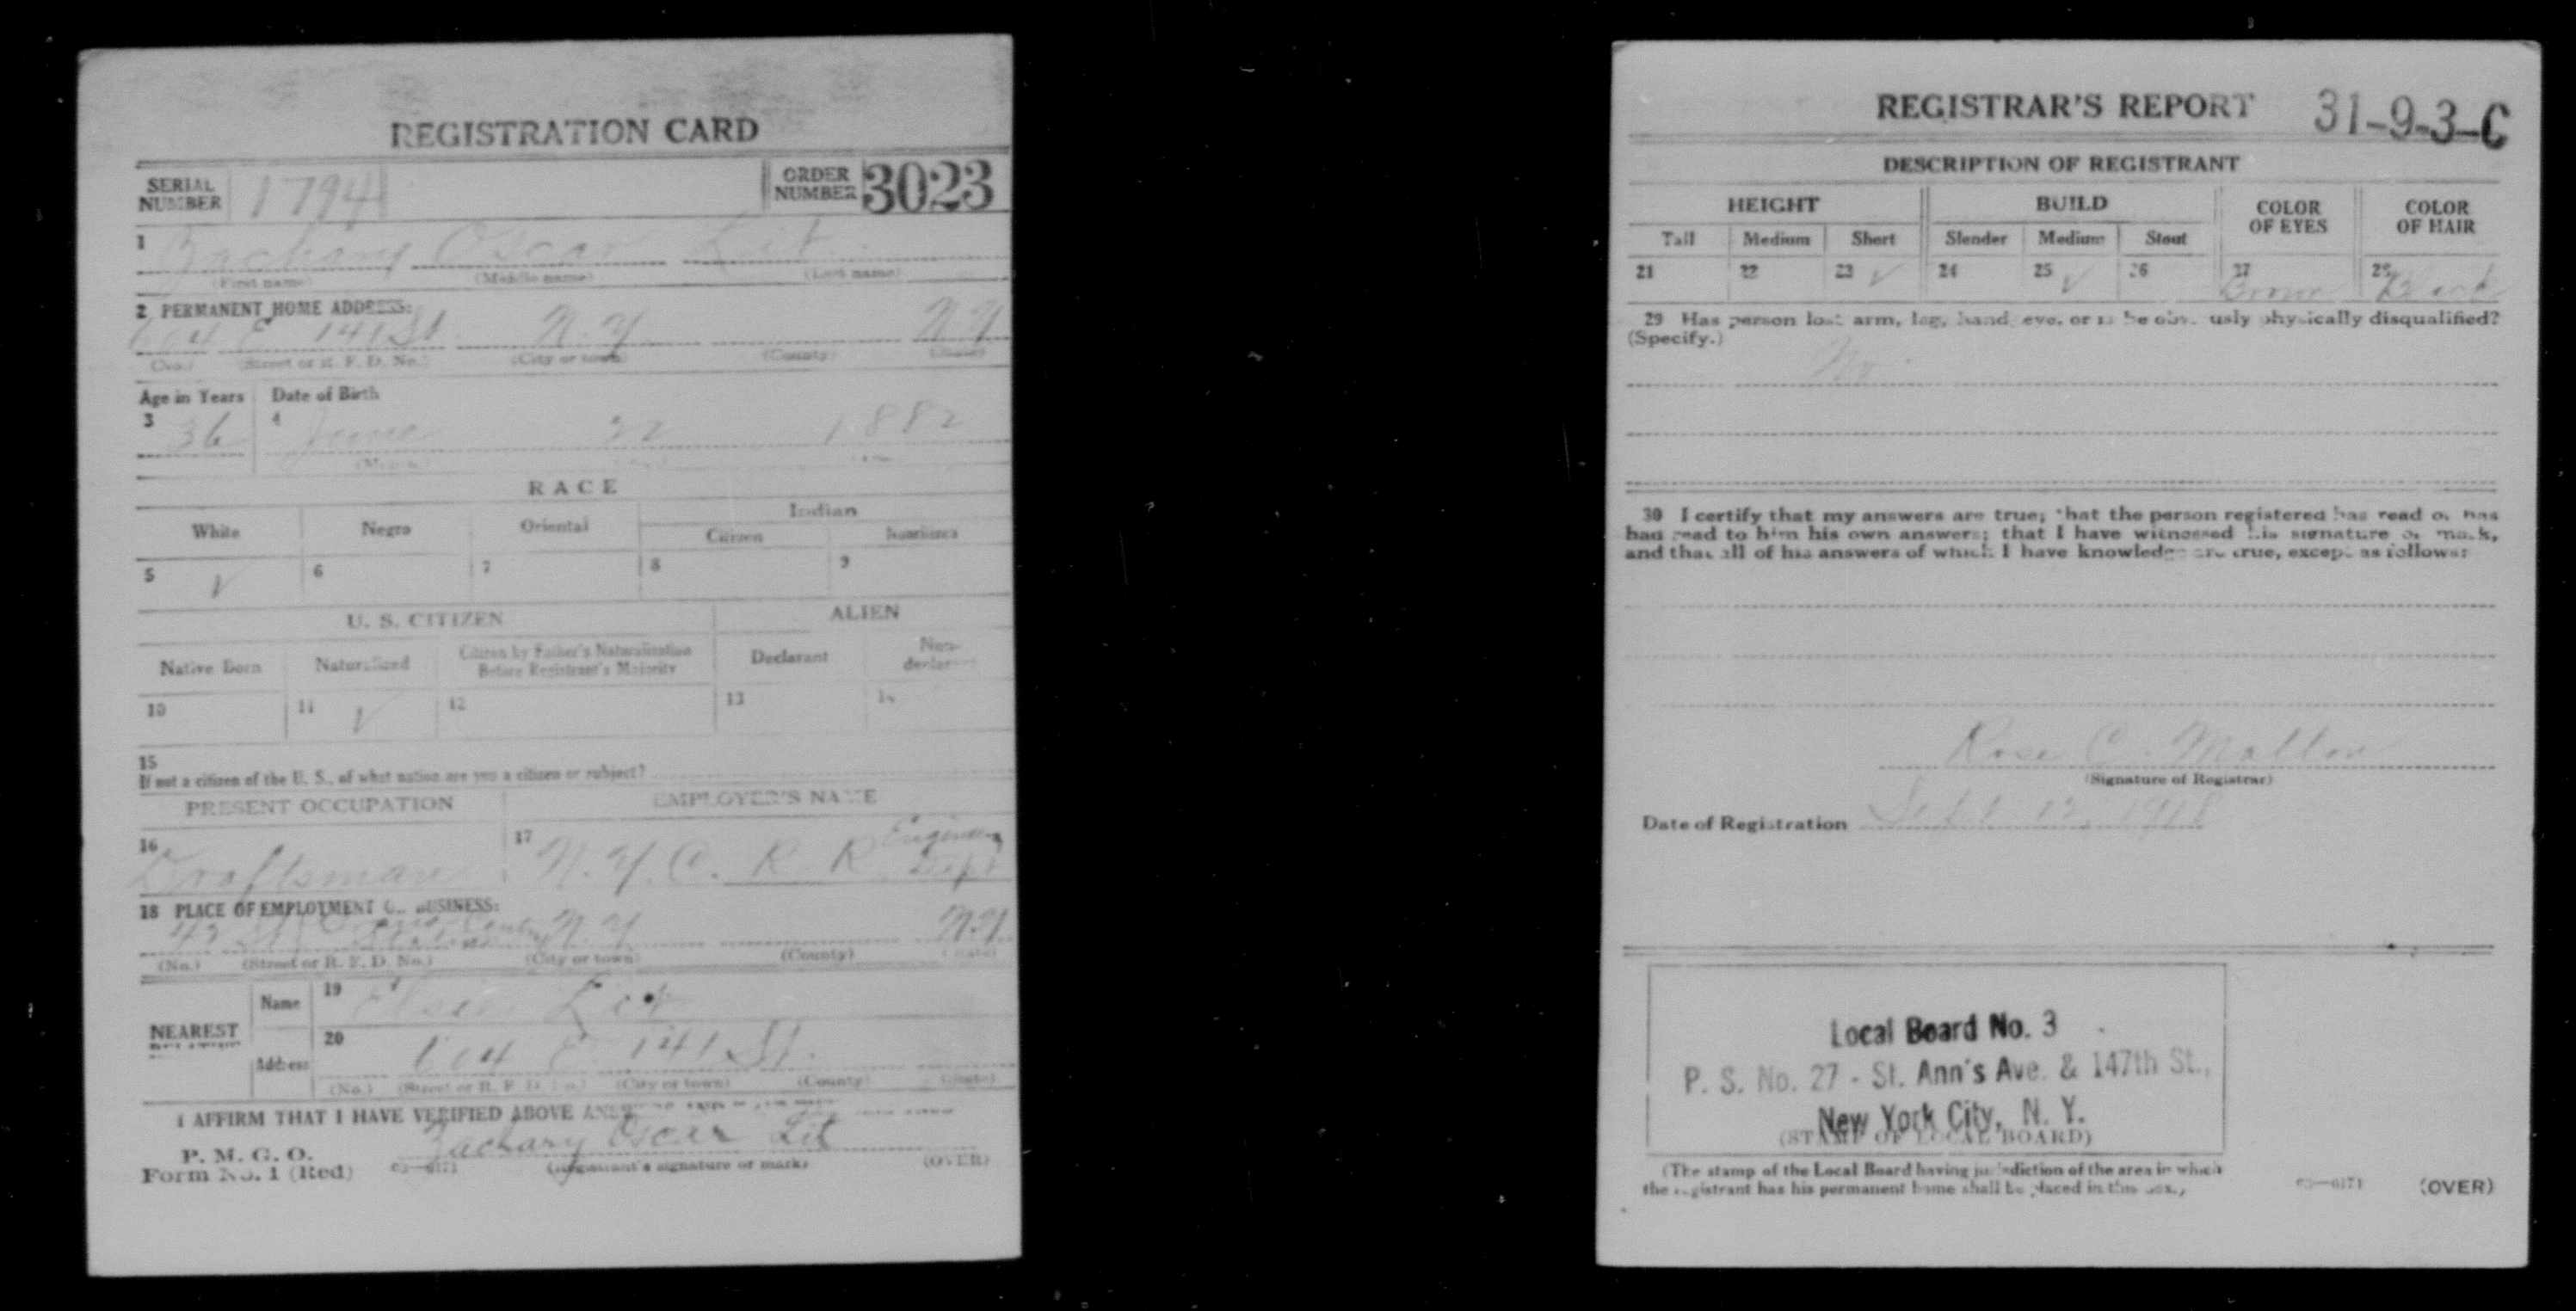 REGISTRATION CARD
SERIAL NUMBER 1794 ORDER NUMBER 3023
1 Zachary Oscar Lit
(First name) (Middle name) (Last name)
2 PERMANENT HOME ADDRESS:
604 E 141 St. N.Y. N.Y.
(No.) (Street or R. F. D. No.) (City or town) (County) (State)
Age in Years Date of Birth
3 36 4 June 22 1882
RACE
White Negro Oriental Indian
Citizen Noncitizen
5 ✓ 6 7 8 9
U. S. CITIZEN ALIEN
Native Born Naturalized Citizen by Father's Naturalization Before Registrant's Majority Declarant Non-declarant
10 11 ✓ 12 13 14
15
If not a citizen of the U. S., of what nation are you a citizen or subject?
PRESENT OCCUPATION EMPLOYER'S NAME
16 Draftsman 17 N.Y.C. R R Dept
18 PLACE OF EMPLOYMENT OR BUSINESS:
43 St N.Y. N.Y.
(No.) (Street or R. F. D. No.) (City or town) (County) (State)
NEAREST
Name 19 Elsie Lit
Address 20 604 E. 141 St.
(No.) (Street or R. F. D. No.) (City or town) (County) (State)
I AFFIRM THAT I HAVE VERIFIED ABOVE
P. M. G. O.
Form No. 1 (Red) Zachary Oscar Lit
03—6171 (Registrant's signature or mark) (OVER)
REGISTRAR'S REPORT 31-9-3-C
DESCRIPTION OF REGISTRANT
HEIGHT BUILD COLOR OF EYES COLOR OF HAIR
Tall Medium Short Slender Medium Stout
21 22 23 ✓ 24 25 ✓ 26 27 Brown 28 Black
29 Has person lost arm, leg, hand, eye, or is he obviously physically disqualified?
(Specify.)
No
30 I certify that my answers are true; that the person registered has read or has
had read to him his own answers; that I have witnessed his signature or mark,
and that all of his answers of which I have knowledge are true, except as follows:
Rose C. Mallon
(Signature of Registrar)
Date of Registration Sept 12, 1918
Local Board No. 3
P. S. No. 27 - St. Ann's Ave. & 147th St.,
New York City, N. Y.
(STAMP OF LOCAL BOARD)
(The stamp of the Local Board having jurisdiction of the area in which
the registrant has his permanent home shall be placed in this box.)
03—6171 (OVER)